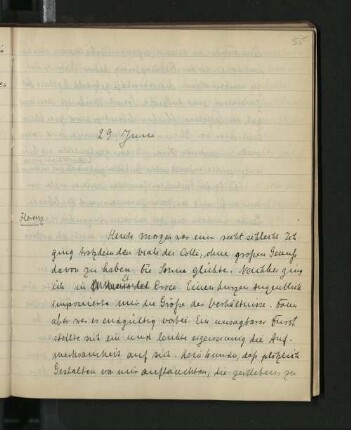 55
29 Juni
Florenz
Heute morgen war mir recht schlecht. Ich
ging trotzdem den Viale dei Colli, ohne großen Genuß
davon zu haben. Die Sonne glühte. Nachher ging
ich in Croce. Einen kurzen Augenblick
imponierte mir die Größe der Verhältnisse. Dann
aber war es endgültig vorbei. Ein unsagbarer Durst
stellte sich ein und lenkte eigensinnig die Auf-
merksamkeit auf sich. kam, daß plötzlich
Gestalten vor mir auftauchten, die zeitlebens zu